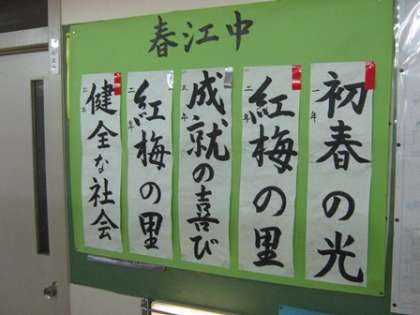 春江中
一年
初春の光
二年
紅梅の里
三年
成就の喜び
二年
紅梅の里
二年
健全な社会